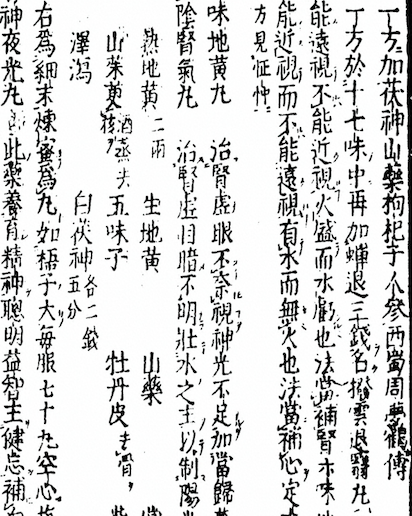 一方加茯神山藥枸杞子人參西蜀周與傳
一方於十七味中再加蟬退三錢名撥雲退翳丸
能遠視不能近視火盛而水虧也法當補腎六味地
能近視而不能遠視有水而無火也法當補心定
方見怔忡
味地黃丸 治腎虛眼不奈視神光不足加當歸
陰腎氣丸 治腎虛目暗不明壯水之主以制陽
熟地黃二兩 生地黃 山藥
山茱萸酒蒸去核 五味子 牡丹皮去骨
澤瀉 白茯神各二錢五分
右為細末煉蜜為丸如梧子大每服七十丸空心
神夜光丸 此藥養育精神聰明益智主健忘補